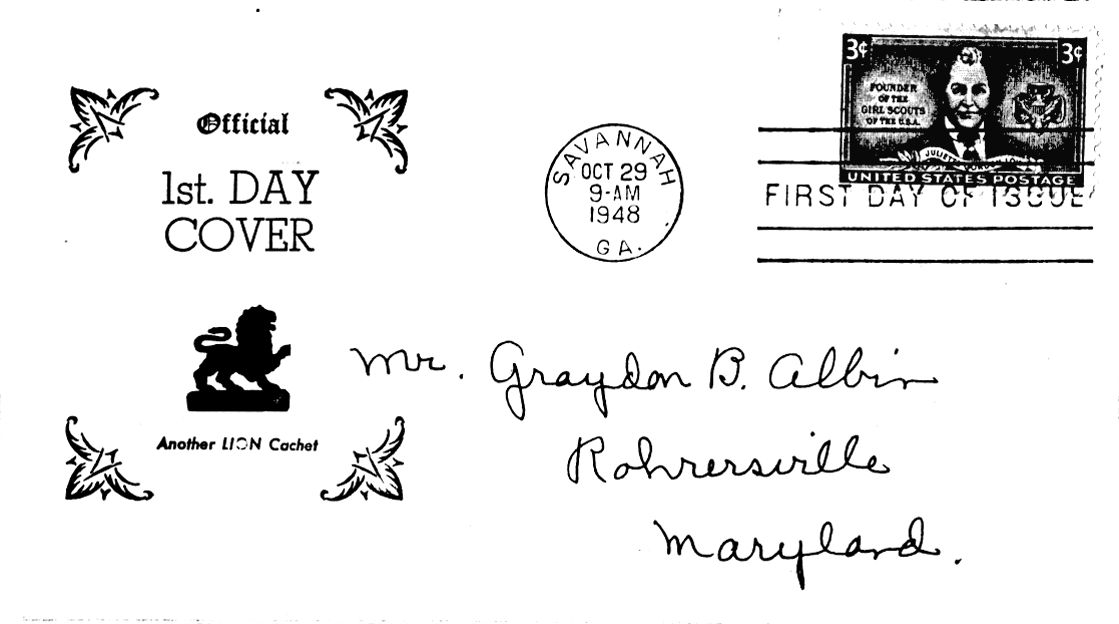 Official
1st. DAY
COVER
Another LION Cachet
SAVANNAH
OCT 29
9-AM
1948
GA.
3¢ 3¢
FOUNDER
OF THE
GIRL SCOUTS
OF THE U.S.A.
UNITED STATES POSTAGE
FIRST DAY OF ISSUE
Mr. Graydon B. Albin
Rohrersville
Maryland.